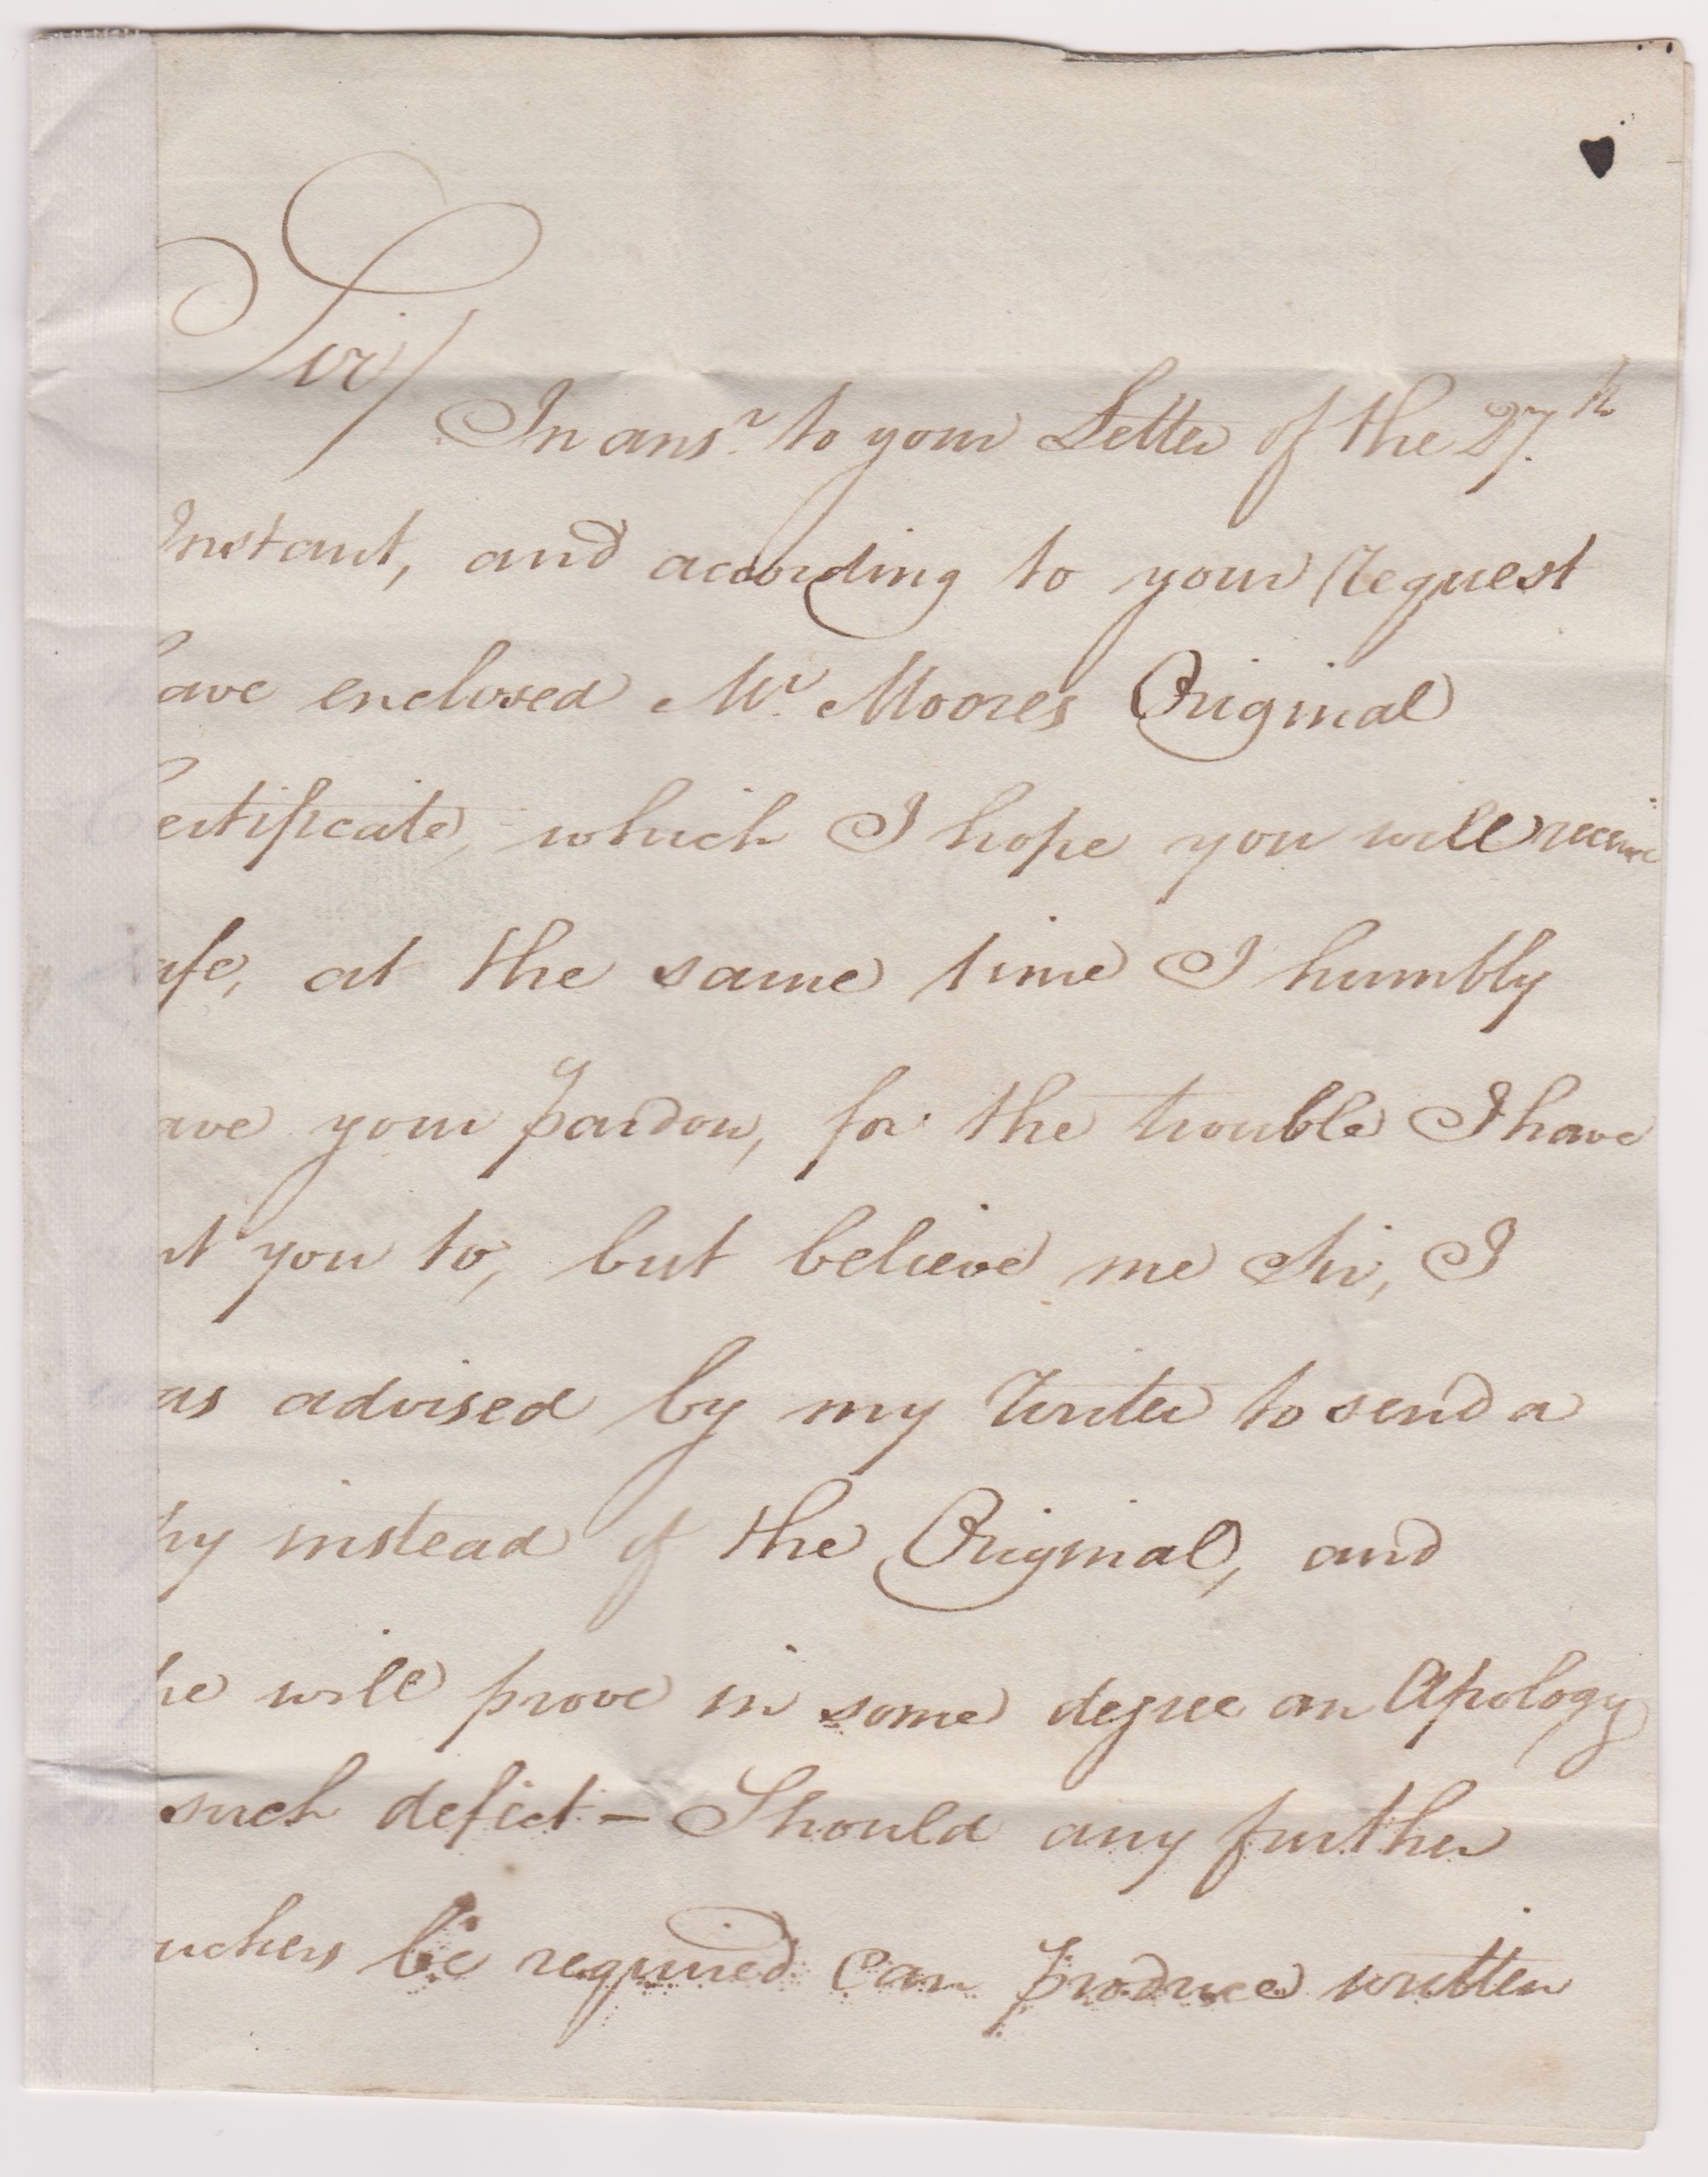 Sir/
In ansr. to your Letter of the 27.th
Instant, and acording to your request
ave enclosed Mr. Moores Original
ertificate, which I hope you will receive
afe, at the same time I humbly
ave your pardon, for the trouble I have
ut you to, but believe me Sir, I
as advised by my writer to send a
py instead of the Original, and
pe will prove in some degree an Apology
such defict – Should any further
uchers be required can produce written